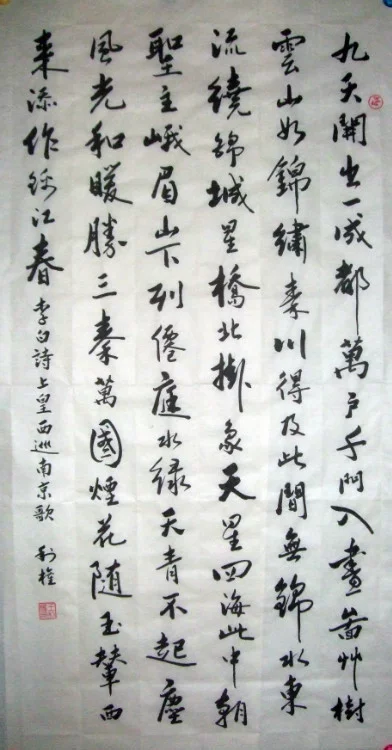 九天開出一成都萬户千門入畫啚草樹
雲山如錦繡秦川得及此間無錦水東
流繞錦城星橋北掛象天星四海此中朝
聖主峨眉山下列僊庭水緑天青不起塵
風光和暖勝三秦萬國煙花随玉輦西
来添作錦江春 李白詩上皇西巡南京歌 利權